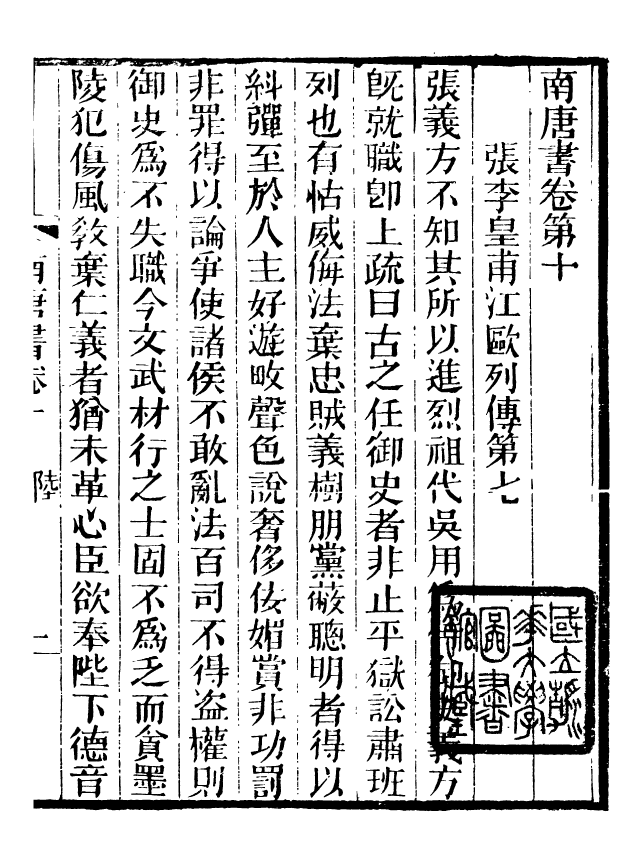 南唐書卷第十
張李皇甫江歐列傳第七
張義方不知其所以進烈祖代吳用爲侍御史義方
旣就職卽上疏曰古之任御史者非止平獄訟肅班
列也有怙威侮法棄忠賊義樹朋黨蔽聰明者得以
糾彈至於人主好遊畋聲色說奢侈佞媚賞非功罰
非罪得以論爭使諸侯不敢亂法百司不得盜權則
御史爲不失職今文武材行之士固不爲乏而貪墨
陵犯傷風敎棄仁義者猶未革心臣欲奉陛下德音
南唐書卷十
陸
一
國立清華大學圖書館